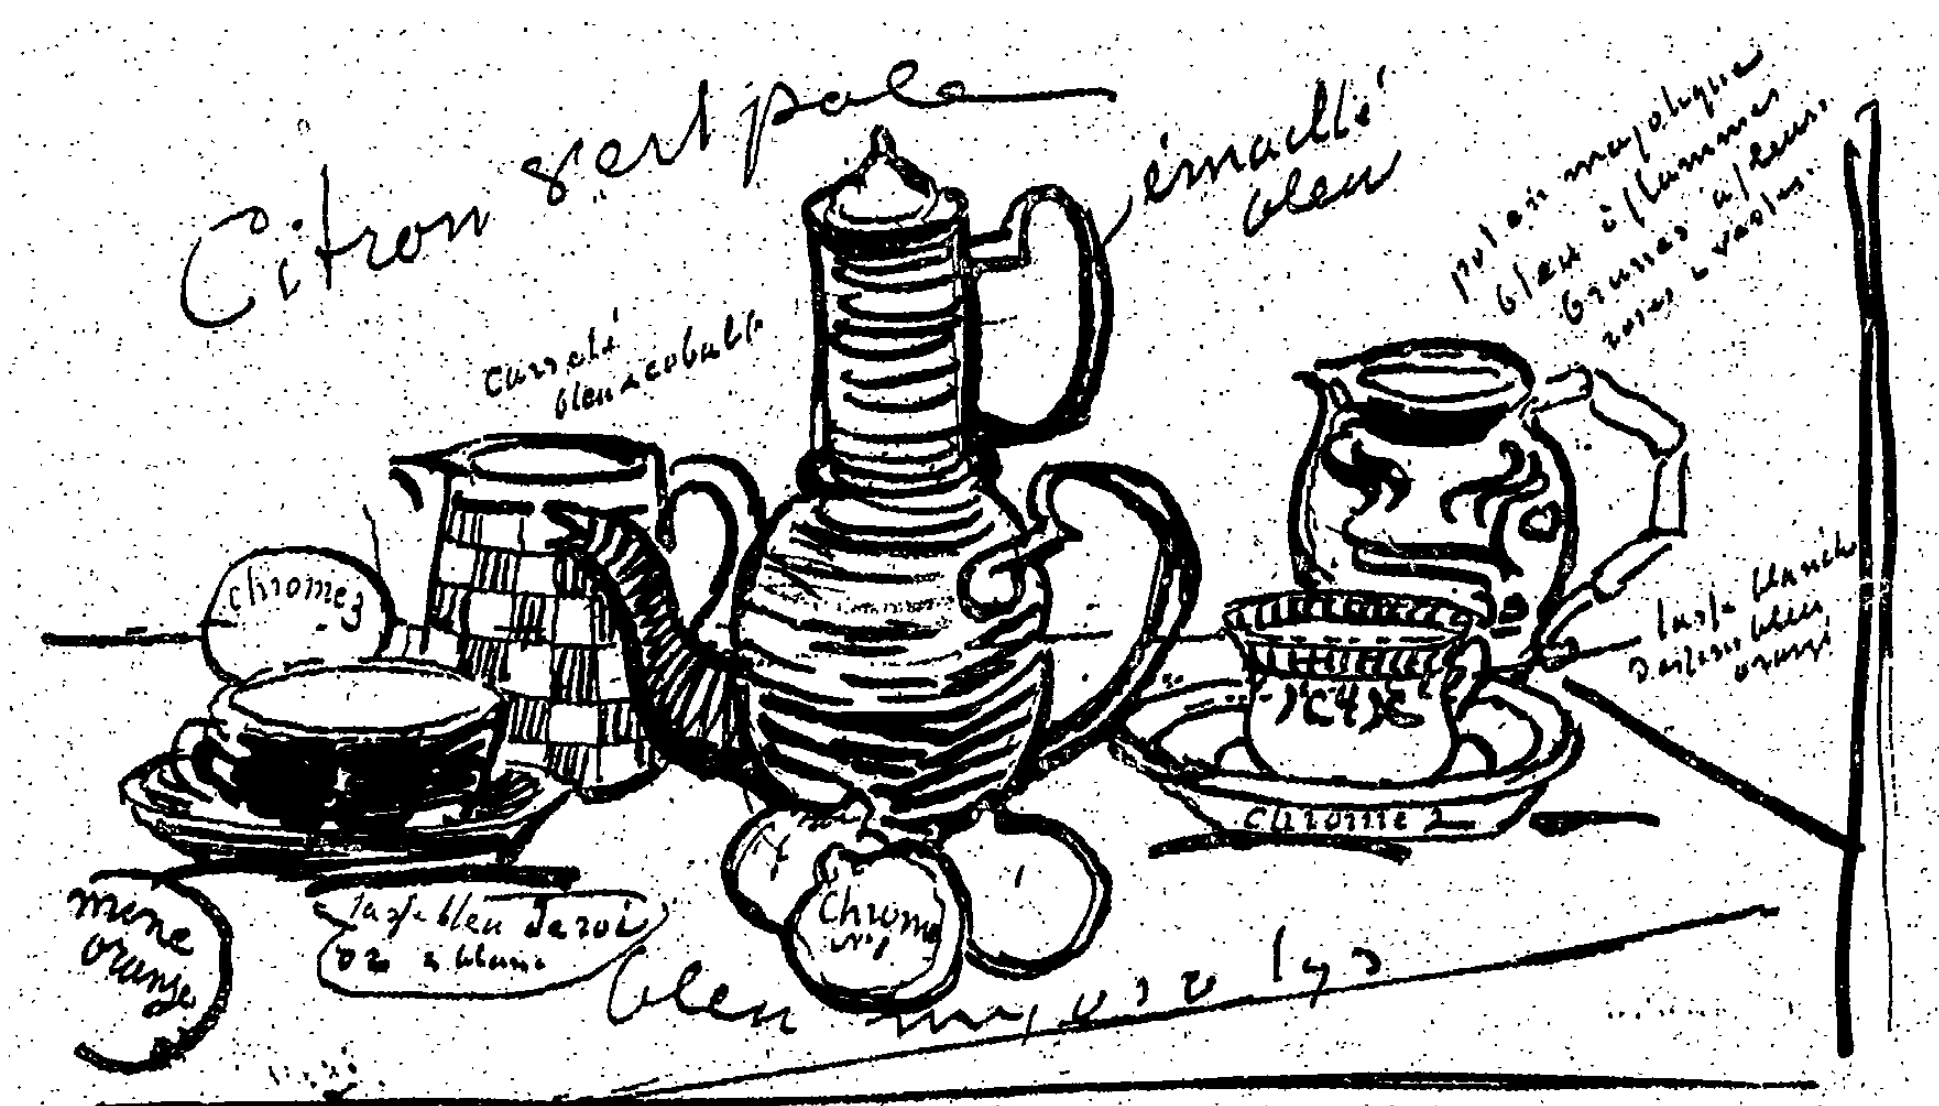 Citron vert pale
émaillé
bleu
pot en majolique
bleu à flammes
brunes à fleurs
roses & vertes.
carrelé
bleu & cobalt
chrome 3
tasse blanche
dessins bleu
orangé
chrome 2
mine
orange
tasse bleu de roi
or & blanc
chrome
No 1
bleu myosotys